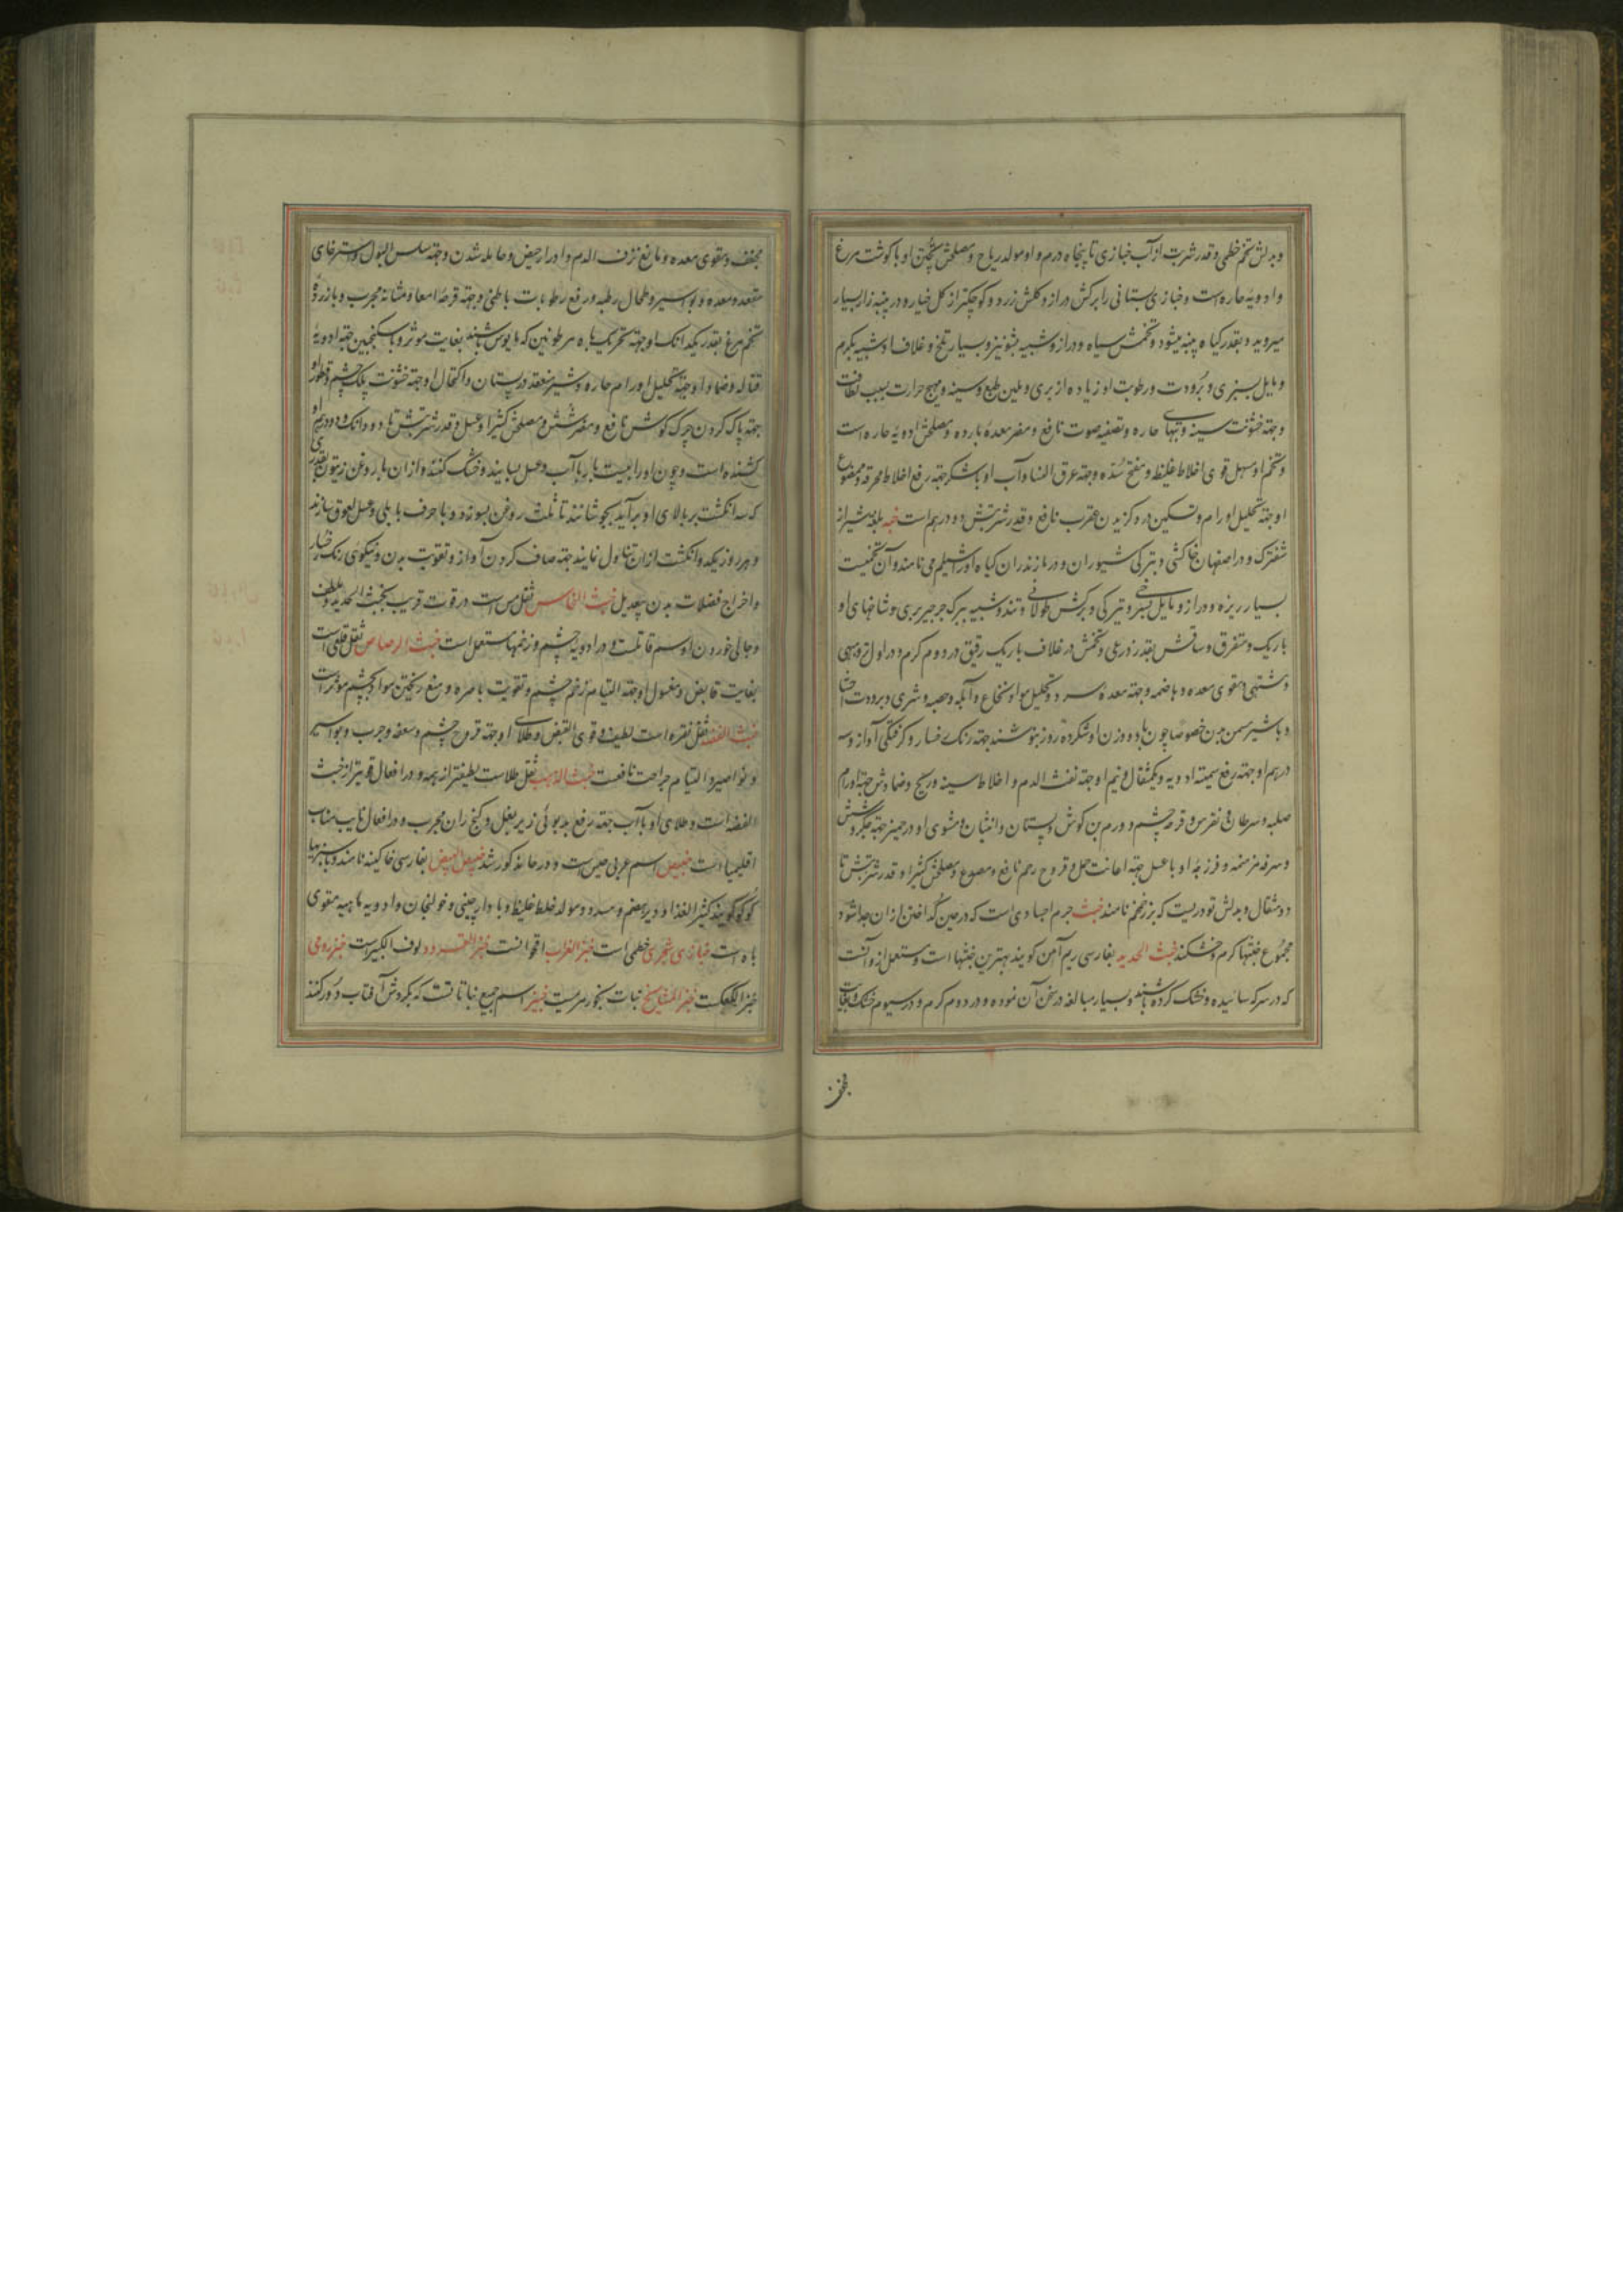 وبدلش تخم خطمی و قدر شربت از آب خبازی تا پنجاه درم و او مولد ریاح و مصلحش پختن او با گوشت مرغ
و ادویه حاره است و خبازی بستانی را برکش دراز و کلش زرد و کوچکتر از کل خیار و در پنبه زار بسیار
میروید و بقدر کیاه پنبه میشود و تخمش سیاه و دراز و شبیه بشونیز و بسیار تلخ و غلاف او شبیه بکرم
و مایل بسبزی و برودت و رطوبت او زیاده از بری و ملین طبع و سینه و مهیج حرارت بسبب لطافت
و جهة خشونت سینه و تبهای حاره و تصفیه صوت نافع و مضر معدهٔ بارده و مصلحش ادویهٔ حاره است
و تخم او مسهل قوی اخلاط غلیظ و مفتح سده و جهة عرق النسا و آب او باشکر جهة رفع اخلاط محرقه و مصنوع
او جهة تحلیل اورام و تسکین درد کزیدن عقرب نافع و قدر شربتش دو درهم است خبه بلغة شیراز
شفترک و در اصفهان خاکشی و بترکی شیوران و در مازندران کیاه او را شلیم می نامند و آن تخمیست
بسیار ریزه و دراز و مایل بسرخی و تیرکی و برکش طولانی و تند و شبیه ببرک جرجیر بری و شاخهای او
باریک و متفرق و ساقش بقدر ذرعی و تخمش در غلاف باریک رقیق در دوم کرم و در اول تر و مبهی
و مشتهی و مقوی معده و هاضمه و جهة معده سرد و تحلیل مواد نخاع و آبله و حصبه و شری و برودت احشا
و باشیر مسمن بدن خصوصا چون با دو وزن او شکر ده روز بنوشند جهة رنک رخسار و کرفتکی آواز و سه
درهم او جهة رفع سمیت ادویه و یکمثقال و نیم او جهة نفث الدم و اخلاط سینه و ریح و ضمادش جهة اورام
صلبه و سرطانی و نقرس و قرحه چشم و ورم بن کوش و پستان و انثیان و مشوی او در خمیر جهة جکر و شش
و سرفه مزمنه و فرزجهٔ او با عسل جهة اعانت حمل و قروح رحم نافع و مصدع و مصلحش کثیرا و قدر شربتش تا
دو مثقال و بدلش تودریست که بزر خمخم نامند خبث جرم اجسادی است که در حین کداختن از آن جدا شود
مجموع خبثها کرم و خشکند خبث الحدید بفارسی ریم آهن کویند بهترین خبثها است و مستعمل ازو آنست
که در سرکه سائیده و خشک کرده باشند و بسیار مبالغه در سحق آن نموده و در دوم کرم و در سیوم خشک و بغایت
مجفف
مجفف و مقوی معده و مانع نزف الدم و ادرار حیض و حامله شدن و جهة سلس البول و استرخای
مقعد و معده و بواسیر و طحال رطبه و رفع رطوبات باطنی و جهة قرحهٔ امعا و مثانه مجرب و با زردهٔ
تخم مرغ بقدر یکدانک او جهة تحریک باه مرطوبین که مایوس باشند بغایت موثر و باسکنجبین جهة ادویهٔ
قتاله و ضماد او جهة تحلیل اورام حاره و شیر منعقد در پستان و اکتحال او جهة خشونت پلک چشم و قطور او
جهة پاک کردن چرک کوش نافع و مضر شش و مصلحش کثیرا و عسل و قدر شربتش تا دو دانک و دو درهم او
کشنده است و چون او را بیست بار با آب و عسل بسایند و خشک کنند و از آن با روغن زیتون بقدری
که سه انکشت بر بالای او برآید بجوشانند تا ثلث روغن بسوزد و با حرف بابلی و عسل لعوق سازند
و هر روز یکدو انکشت از آن تناول نمایند جهة صاف کردن آواز و تقویت بدن و نیکوی رنک رخسار
و اخراج فضلات بدن بیعدیل خبث النحاس ثقل مس است در قوت قریب بخبث الحدید و ملطف
و جالی خوردن او سم قاتلست و در ادویه چشم و زخمها مستعمل است خبث الرصاص ثقل قلعی است
بغایت قابض و مغسول او جهة التیام زخم چشم و تقویت باصره و منع ریختن مواد بچشم موثر است
خبث الفضه ثقل نقره است لطیف و قوی القبض و طلای او جهة قروح چشم و سعفه و جرب و بواسیر
و نواصیر و التیام جراحت نافعست خبث الذهب ثقل طلاست لطیفتر از همه و در افعال قویتر از خبث
الفضه است و طلای او با آب جهة رفع بدبوئی زیر بغل و کنج ران مجرب و در افعال نایب مناب
اقلیمیا است خبیص اسم عربی حیس است و در حا مذکور شد خبیص البیض بفارسی خاکینه نامند و با سبزیها
کوکو کویند کثیر الغذا و دیر هضم و مسدد و مولد خلط غلیظ و با دارچینی و خولنجان و ادویه باهیه مقوی
باه است خبازی شجری خطمی است خبز الغراب اقحوانست خبز القرود لوف الکبیر است خبز رومی
خبز الکعکست خبز المشایخ نبات بخور مریمست خبیز اسم جمیع نباتاتست که بکردش آفتاب دور کنند